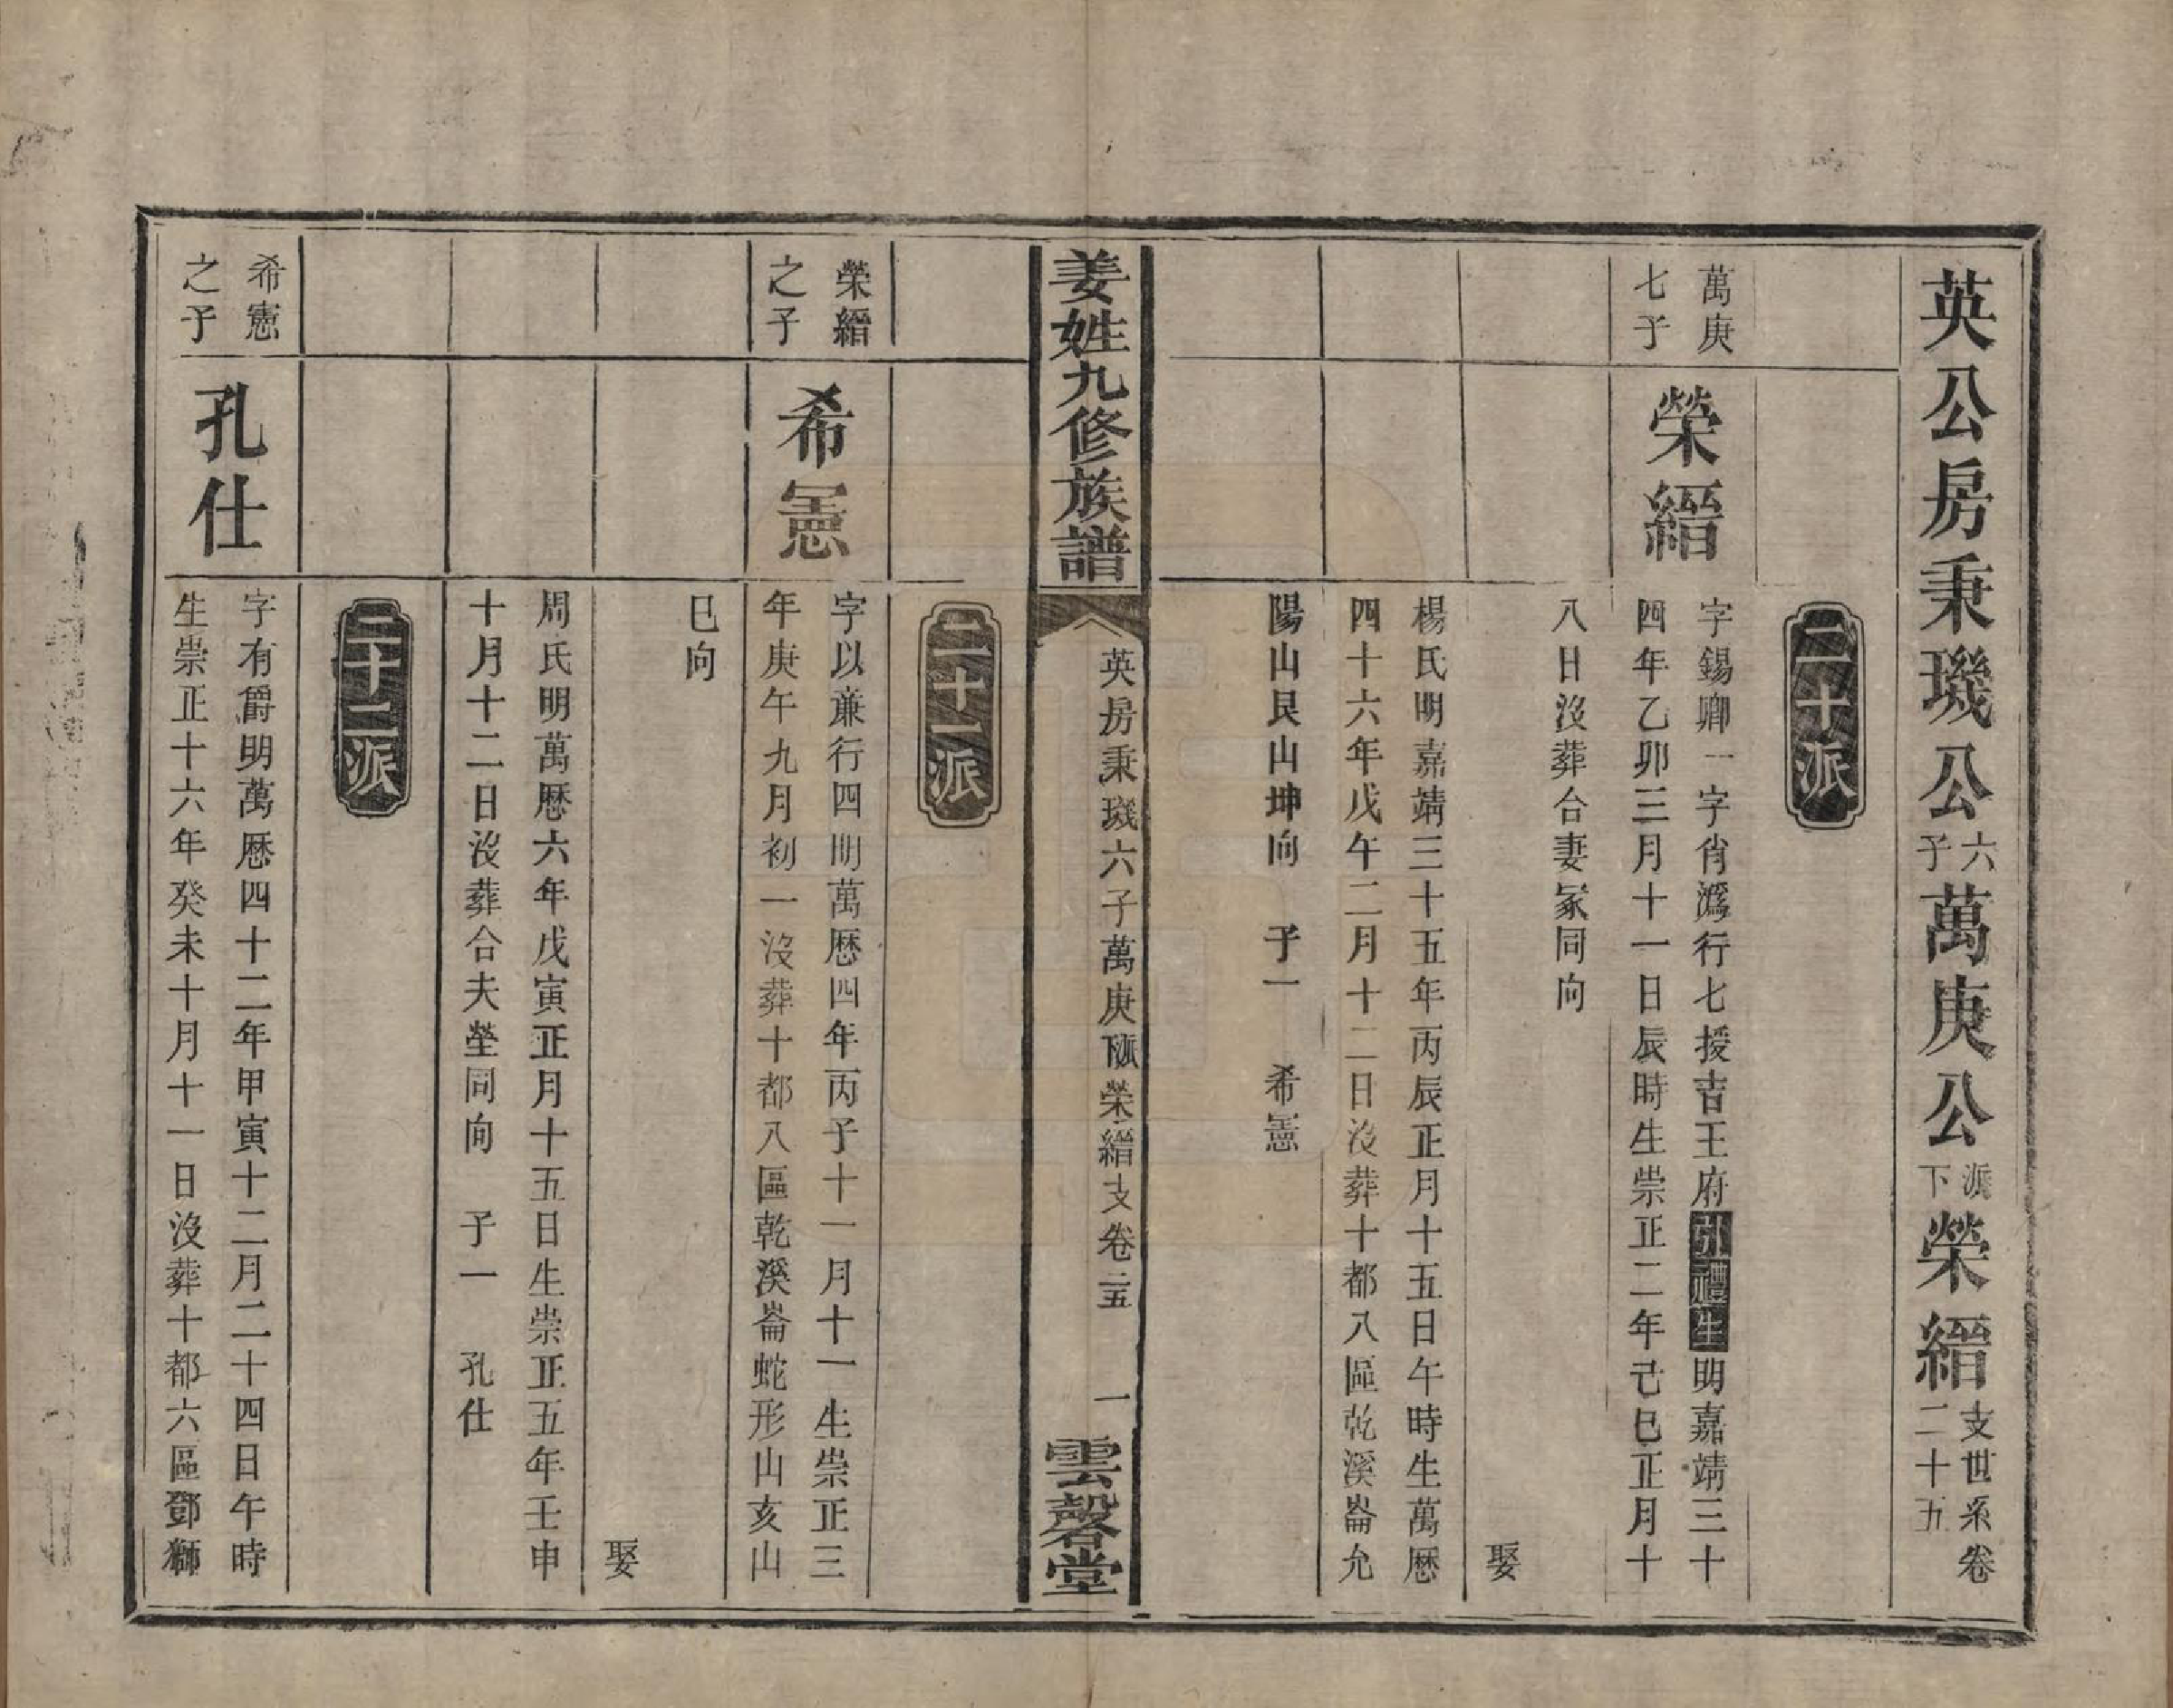 英公房秉璣公六子萬庚公派下榮縉支世系卷二十五
二十派
萬庚
七子
榮縉
字錫卿一字肖潙行七授吉王府引禮生明嘉靖三十
四年乙卯三月十一日辰時生崇正二年己巳正月十
八日沒葬合妻冢同向
娶
楊氏明嘉靖三十五年丙辰正月十五日午時生萬歷
四十六年戊午二月十二日沒葬十都八區乾溪崙允
陽山艮山坤向 子一 希憲
姜姓九修族譜
英房秉璣六子萬庚派下榮縉支卷二五 一
雲磬堂
二十一派
榮縉
之子
希憲
字以蔍行四明萬歷四年丙子十一月十一生崇正三
年庚午九月初一沒葬十都八區乾溪崙蛇形山亥山
巳向
娶
周氏明萬歷六年戊寅正月十五日生崇正五年壬申
十月十二日沒葬合夫塋同向 子一 孔仕
二十二派
希憲
之子
孔仕
字有爵明萬歷四十二年甲寅十二月二十四日午時
生崇正十六年癸未十月十一日沒葬十都六區鄧獅